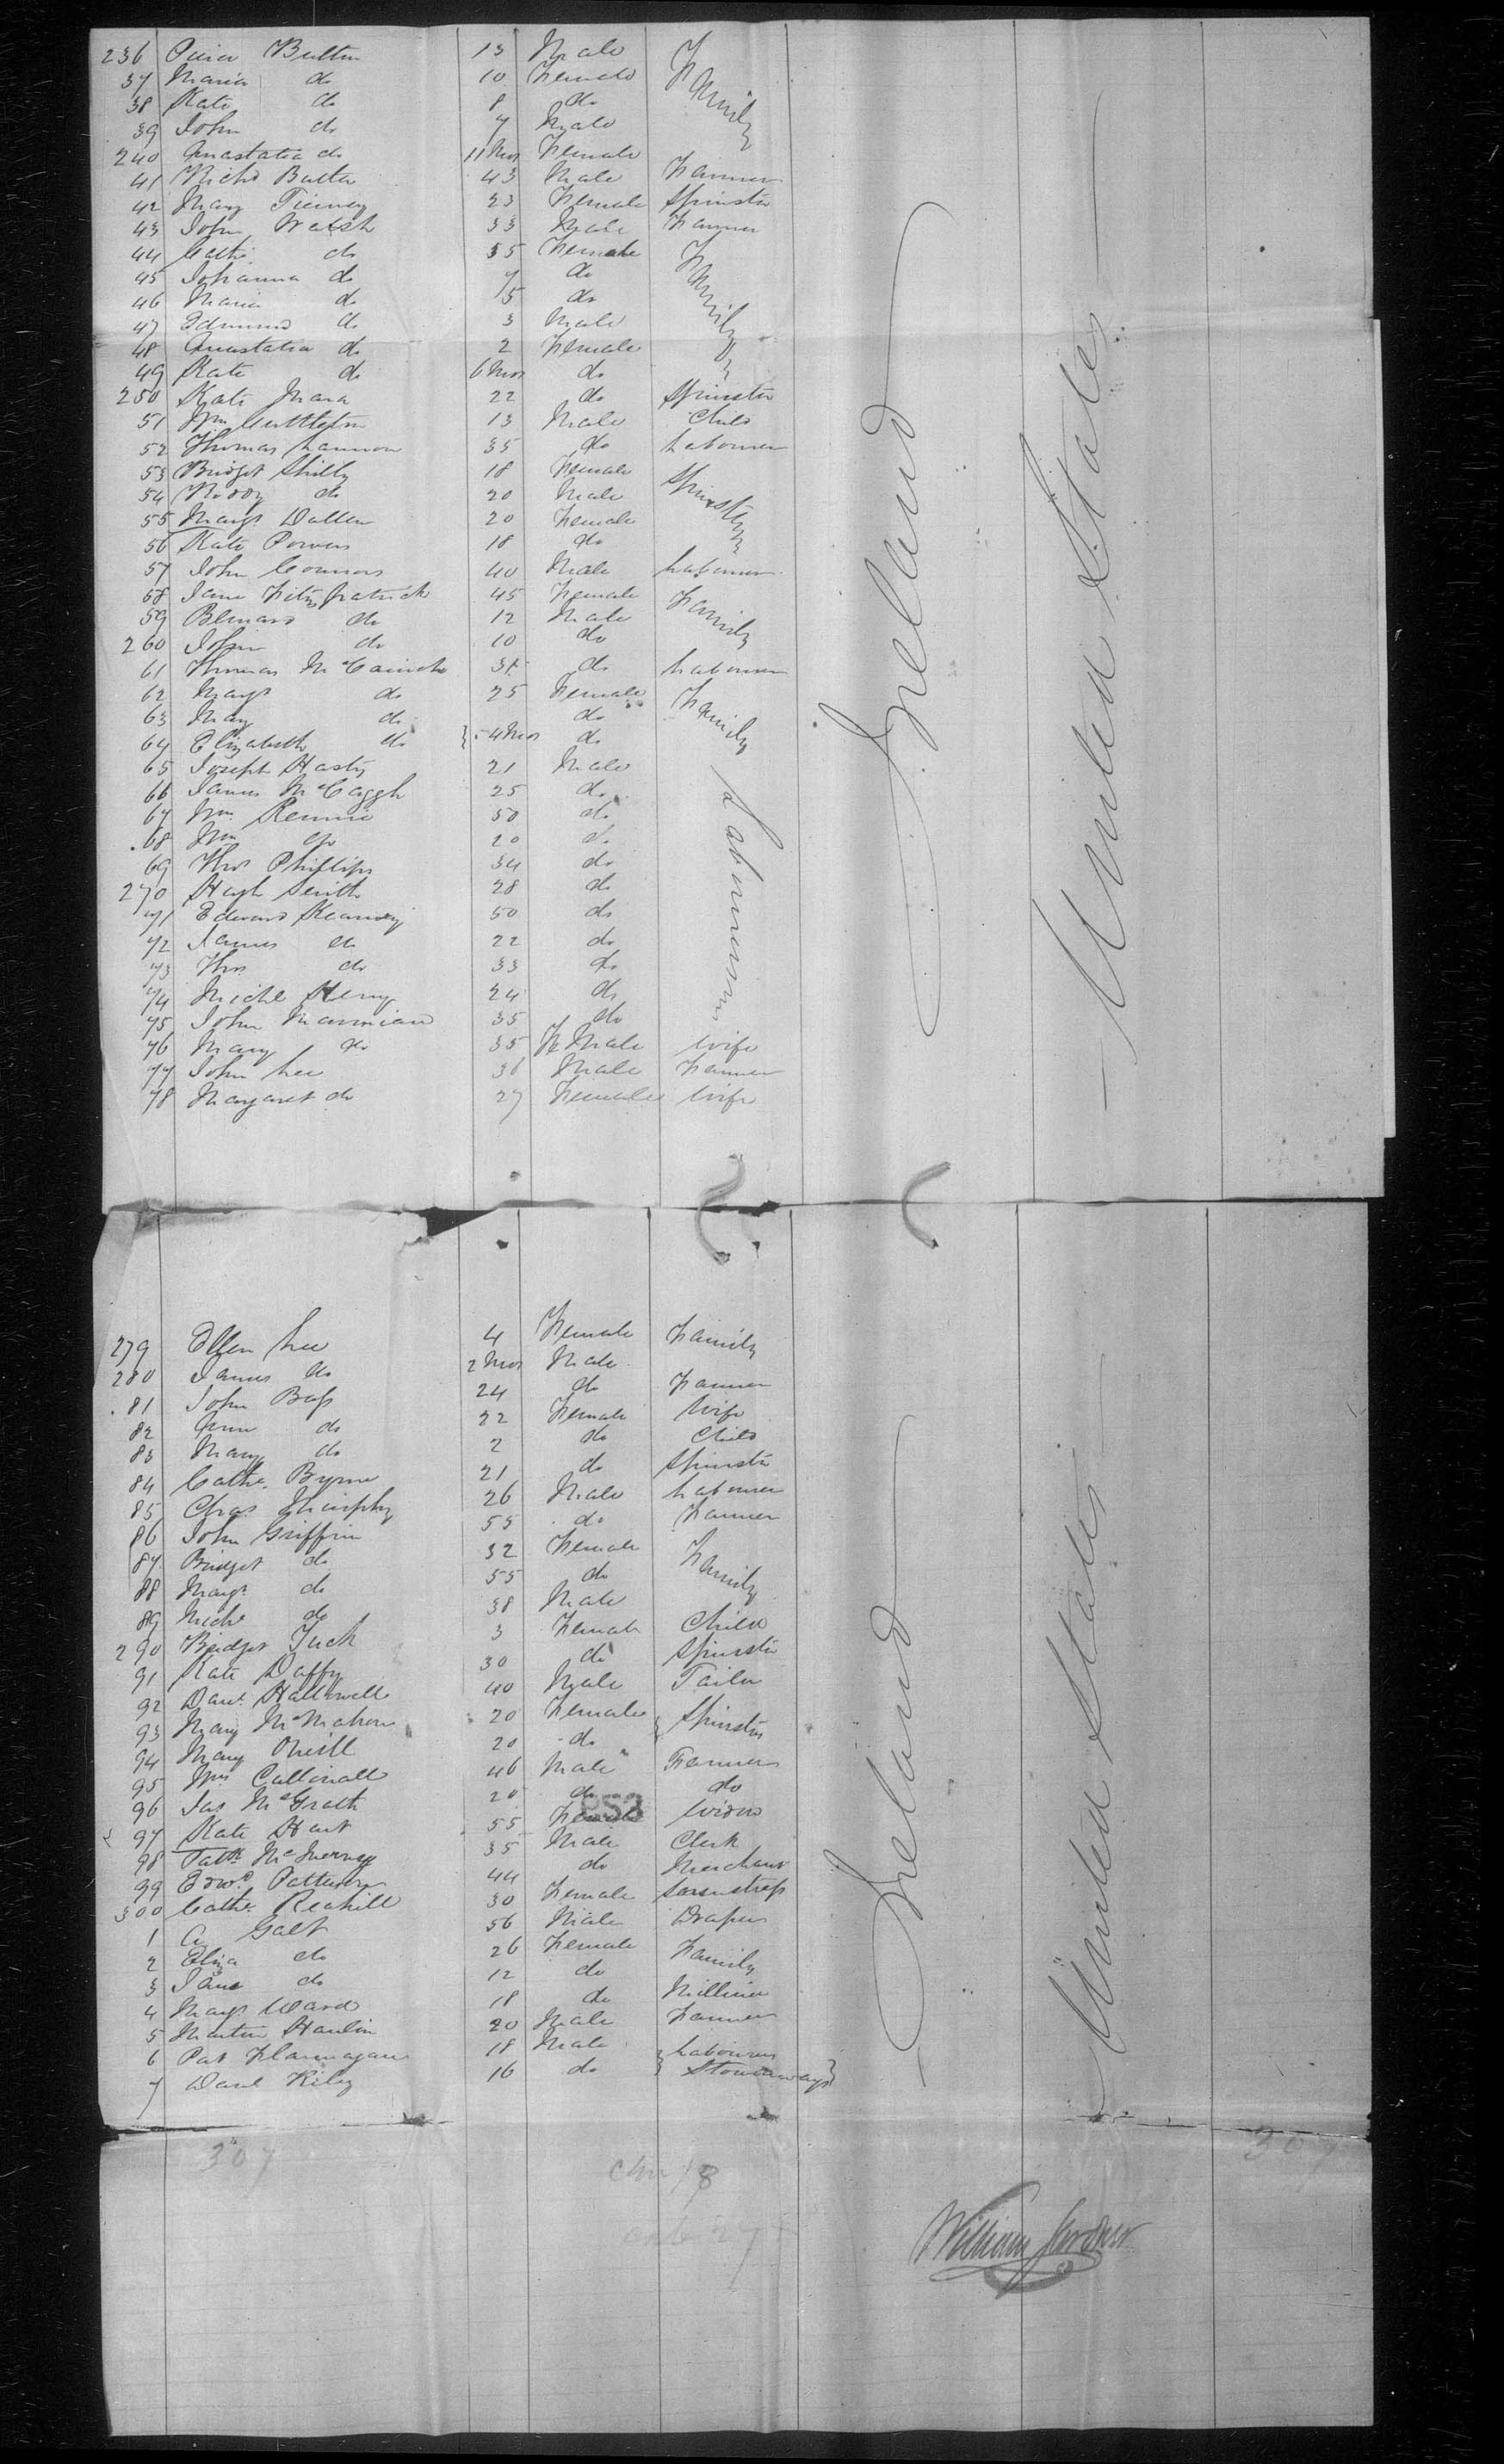 236 Pierce Butler 13 Male Family
37 Maria do 10 Female
38 Kate do 8 do
39 John do 7 Male
240 Anastatia do 11 Mos Female
41 Richd Butler 43 Male Farmer
42 Mary Tierney 23 Female Spinster
43 John Walsh 33 Male Farmer
44 Cathe do 35 Female Family
45 Johanna do 7 do
46 Maria do 5 do
47 Edmund do 3 Male
48 Anastatia do 2 Female
49 Kate do 6 Mos do
250 Kate Mara 22 do Spinster
51 Wm 13 Male Child
52 Thomas Lannon 35 do Labourer
53 Bridget Shilly 18 Female Spinsters
54 Roddy do 20 Male
55 Margt Dallen 20 Female
56 Kate Powers 18 do
57 John Connors 40 Male Labourer
58 Jane Fitzpatrick 45 Female Family
59 Bernard do 12 Male
260 John do 10 do
61 Thomas 31 do Labourer
62 Margt do 25 Female Family
63 Mary do do
64 Elizabeth do } 4 Mos do
65 Joseph Hasty 21 Male Labourers
66 James McCaggh 25 do
67 Wm Rennie 50 do
68 Wm do 20 do
69 Thos Phillips 34 do
270 Hugh Smith 28 do
71 Edward Kearney 50 do
72 James do 22 do
73 Thos do 33 do
74 Michl Henry 24 do
75 John Marrinan 35 do
76 Mary do 35 FeMale Wife
77 John Lee 36 Male Farmer
78 Margaret do 27 Female Wife
Ireland
United States
279 Ellen Lee 4 Female Family
280 James do 2 Mos Male
81 John Bass 24 do Farmer
82 Ann do 22 Female Wife
83 Mary do 2 do Child
84 Cathe. Byrne 21 do Spinster
85 Chas Murphy 26 Male Labourer
86 John Griffin 55 do Farmer
87 Bridget do 32 Female Family
88 Margt do 55 do
89 Michl do 38 Male
290 Bridget Tuck 3 Female Child
91 Kate Daffy 30 do Spinster
92 Danl. Hallowell 40 Male Tailor
93 Mary McMahon 20 Female } Spinsters
94 Mary Oneill 20 do
95 Wm Cullinall 46 Male Farmers
96 Jas McGrath 20 do do
97 Kate Hart 55 Female Widow
98 Patk McInerney 35 Male Clerk
99 Edwd. Patterson 44 do Merchant
300 Cathe. Reahill 30 Female Seamstress
1 A Galt 56 Male Draper
2 Eliza do 26 Female Family
3 Jane do 12 do
4 Margt Ward 18 do Milliner
5 Martin Hanlin 20 Male Farmer
6 Pat Flannagan 18 Male } Labourers
7 Danl Kiley 16 do } Stowaways }
Ireland
United States
853
307
307
William Gardner